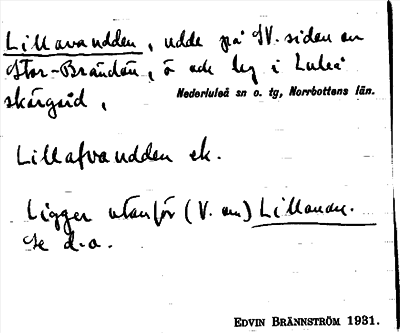 Lillavaudden, udde på SV. sidan av
Stor-Brändön, ö och by i Luleå
skärgård,
Nederluleå sn o. tg, Norrbottens län.
Lillafvaudden ek.
Ligger utanför (V. om) Lillavan.
Se d.o.
EDVIN BRÄNNSTRÖM 1931.